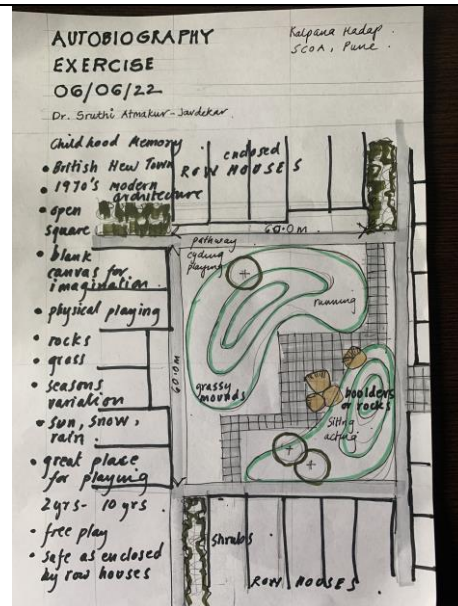 AUTOBIOGRAPHY
EXERCISE
06/06/22
Dr. Sruthi Atmakur-Javdekar
Kalpana Hadap
SCOA, Pune.
Childhood Memory
• British New Town
• 1970's modern
architecture
• open
square
• blank
canvas for
imagination.
• physical playing
• rocks
• grass
• seasons
variation
• sun, snow,
rain.
• great place
for playing
2yrs - 10yrs
• free play
• safe as enclosed
by row houses
enclosed
ROW HOUSES
60.0m
pathway
cycling
playing
running
60.0m
grassy
mounds
boolders
or rocks
Siting
acting
shrubs
ROW HOUSES